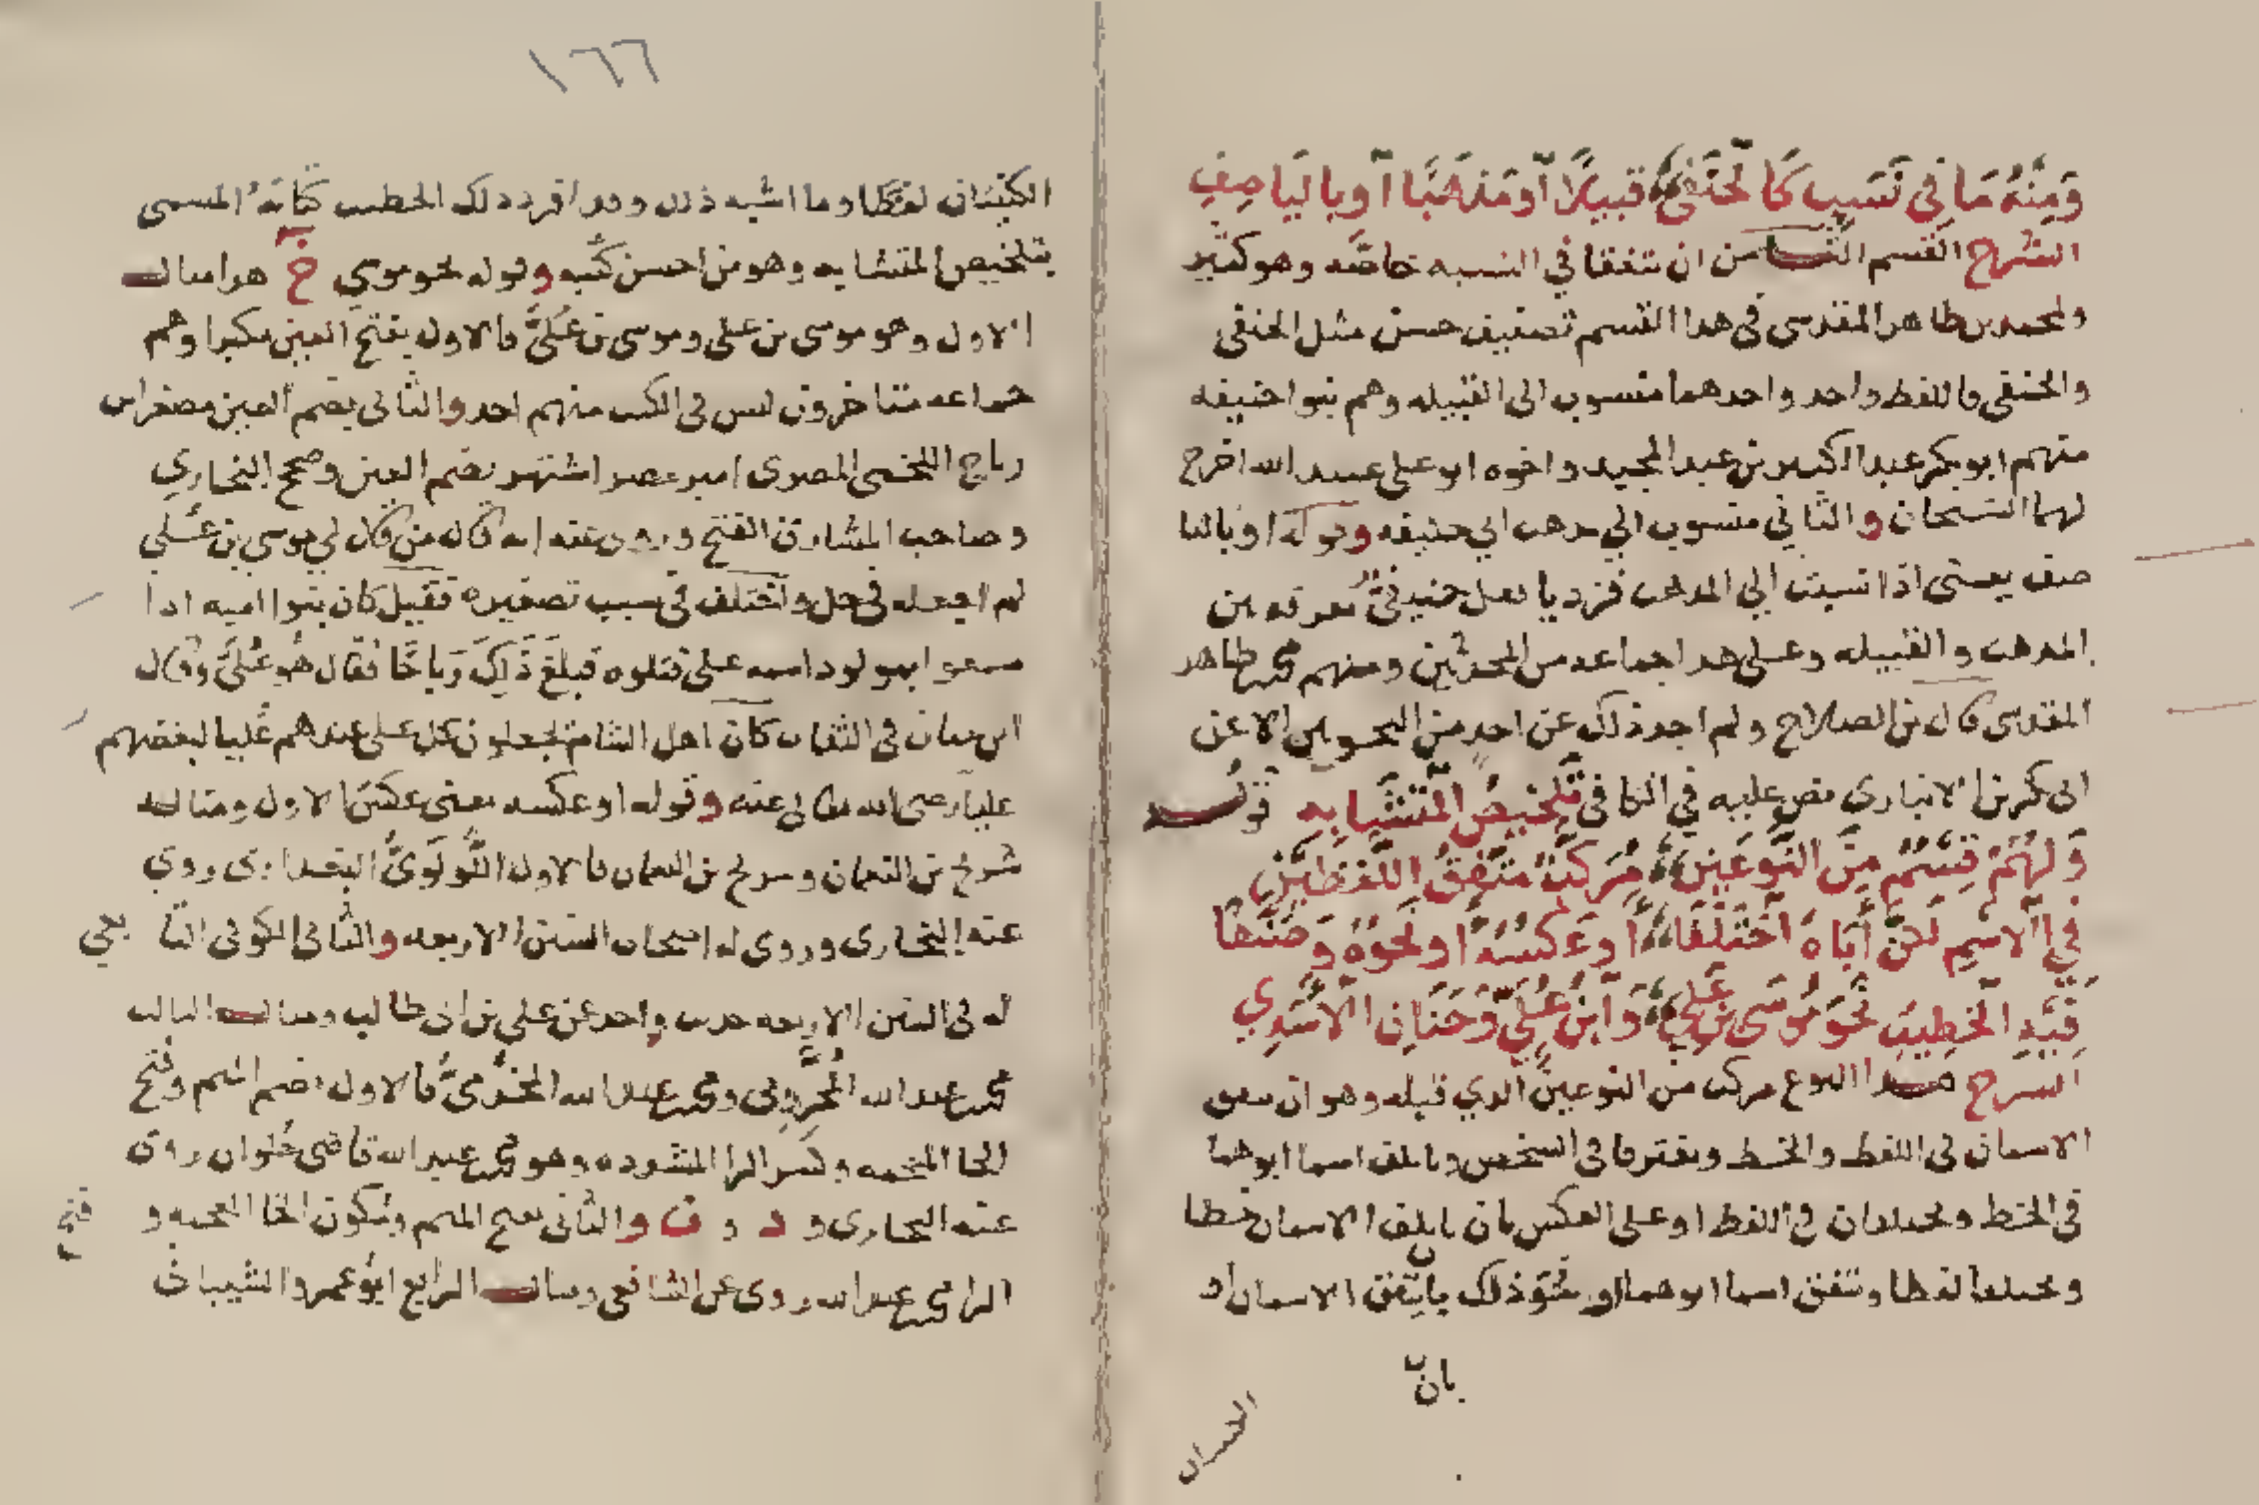 وَمِنْهُ مَا فِي نَسَبٍ كَالْحَنَفِي قَبِيلًا أَوْ مَذْهَبًا أَوْ بِالْيَا صِفِ
الشرح القسم الثامن ان يتفقا في النسبه خاصه وهو كثير
ولمحمد بن طاهر المقدسي في هدا القسم تصنيف حسن مثل الحنفي
والحنفي فاللفظ واحد واحدهما منسوب الى القبيله وهم بنو احنيفه
منهم ابو بكر عبد الكبير بن عبد المجيد واخوه ابو علي عبيد الله اخرج
لهما الشيخان والثاني منسوب الي مدهب ابي حنيفه وقوله او باليا
صف يعني اذا نسبت الي المدهب فزد يا فقل حنيفيّ تفرقه بين
المدهب والقبيله وعلى هدا جماعه من المحدثين ومنهم محمد بن طاهر
المقدسي قال بن الصلاح ولم اجد ذلك عن احد من النحويين الا عن
ابي بكر بن الانباري نص عليه في الكافي تَلْخِيصُ الْمُتَشَابِهِ قوله
وَلَهُمْ قِسْمٌ مِنَ النَّوْعَيْنِ مُرَكَّبٌ مُتَّفِقُ اللَّفْظَيْنِ
فِي الْاسْمِ لَكِنْ أَبَاهُ اخْتَلَفَا أَوْ عَكْسُهُ أَوْ نَحْوُهُ وَصَنَّفَا
فِيهِ الْخَطِيبُ نَحْوَ مُوسَى بْنِ عَلِي وَابْنِ عُلَيٍّ وَحَنَانِ الْأَسَدِي
الشرح هدا النوع مركب من النوعين الدي قبله وهو ان يتفق
الاسمان في اللفظ والخط ويفترقا في الشخص وياتلف اسما ابوهما
في الخط ويختلفان في اللفظ او على العكس بان ياتلف الاسمان خطا
ويختلفا لفظا ويتفق اسما ابوهما او نحو ذلك بان يتفق الاسمان او
بان
الكنيتان
١٦٦
الكنيتان لفظا وما اشبه ذلك وقد افرد ذلك الخطيب كتابَهُ المسمى
بتلخيص المتشابه وهو من احسن كتبه وقوله نحو موسي خ هدا مثال
الاول وهو موسى بن علي وموسى بن عُليّ فالاول بفتح العين مكبرا وهم
جماعه متاخرون ليس في الكتب منهم احد والثاني بضم العين مصغرا بن
رباح اللخمي المصري امير مصر اشتهر بضم العين وصحح البخاري
وصاحب المشارق الفتح وروى عنه انه قال من قال لي موسى بن عُلي
لم اجعله في حل واختلف في سبب تصغيره فقيل كان بنوا اميه ادا
سمعوا بمولود اسمه علي قتلوه فبلغ ذَلِكَ رَبَاحًا فقال هُوَ عُلَيّ وقال
ابن حبان في الثقات كان اهل الشام يجعلون كل علي عندهم عُليا لبغضهم
عليا رضي الله تعالى عنه وقوله او عكسه يعني عكس الاول ومثاله
شريح بن النعمان وسريج بن النعمان فالاول اللُّولَويُّ البغدادي روي
عنه البخاري وروي له اصحاب السنن الاربعه والثاني الكوفي التا بعي
له في السنن الاربعه حديث واحد عن علي بن ابي طالب ومثال الثالث
محمد بن عبد الله المُخَرِّمي ومحمد بن عبد الله المَخْرَميُّ فالاول بضم الميم وفتح
الخا المعجمه وكسر الرا المشدده وهو محمد بن عبد الله قاضي حُلوان روى
عنه البخاري و د و ن والثاني بفتح الميم وسكون الخا المعجمه و فتح
الرا محمد بن عبد الله روى عن الشافعي ومثال الرابع ابو عمرو الشيباني